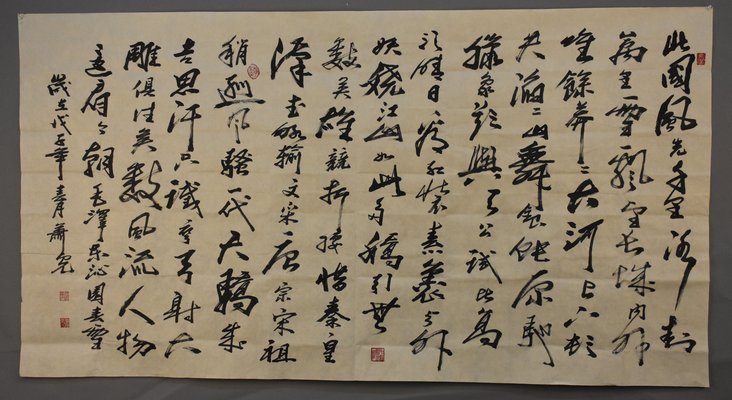 北國風光千里冰封
萬里雪飘望长城内外
唯餘莽々大河上下顿
失滔々山舞银蛇原馳
蜡象欲與天公試比高
须晴日看红装素裹分外
妖娆江山如此多嬌引無
數英雄競折腰惜秦皇
漢武略输文采唐宗宋祖
稍逊风騷一代天驕成
吉思汗只識弯弓射大
雕俱往矣數風流人物
还看今朝毛澤东沁園春雪
歲在戊子年春月蕭